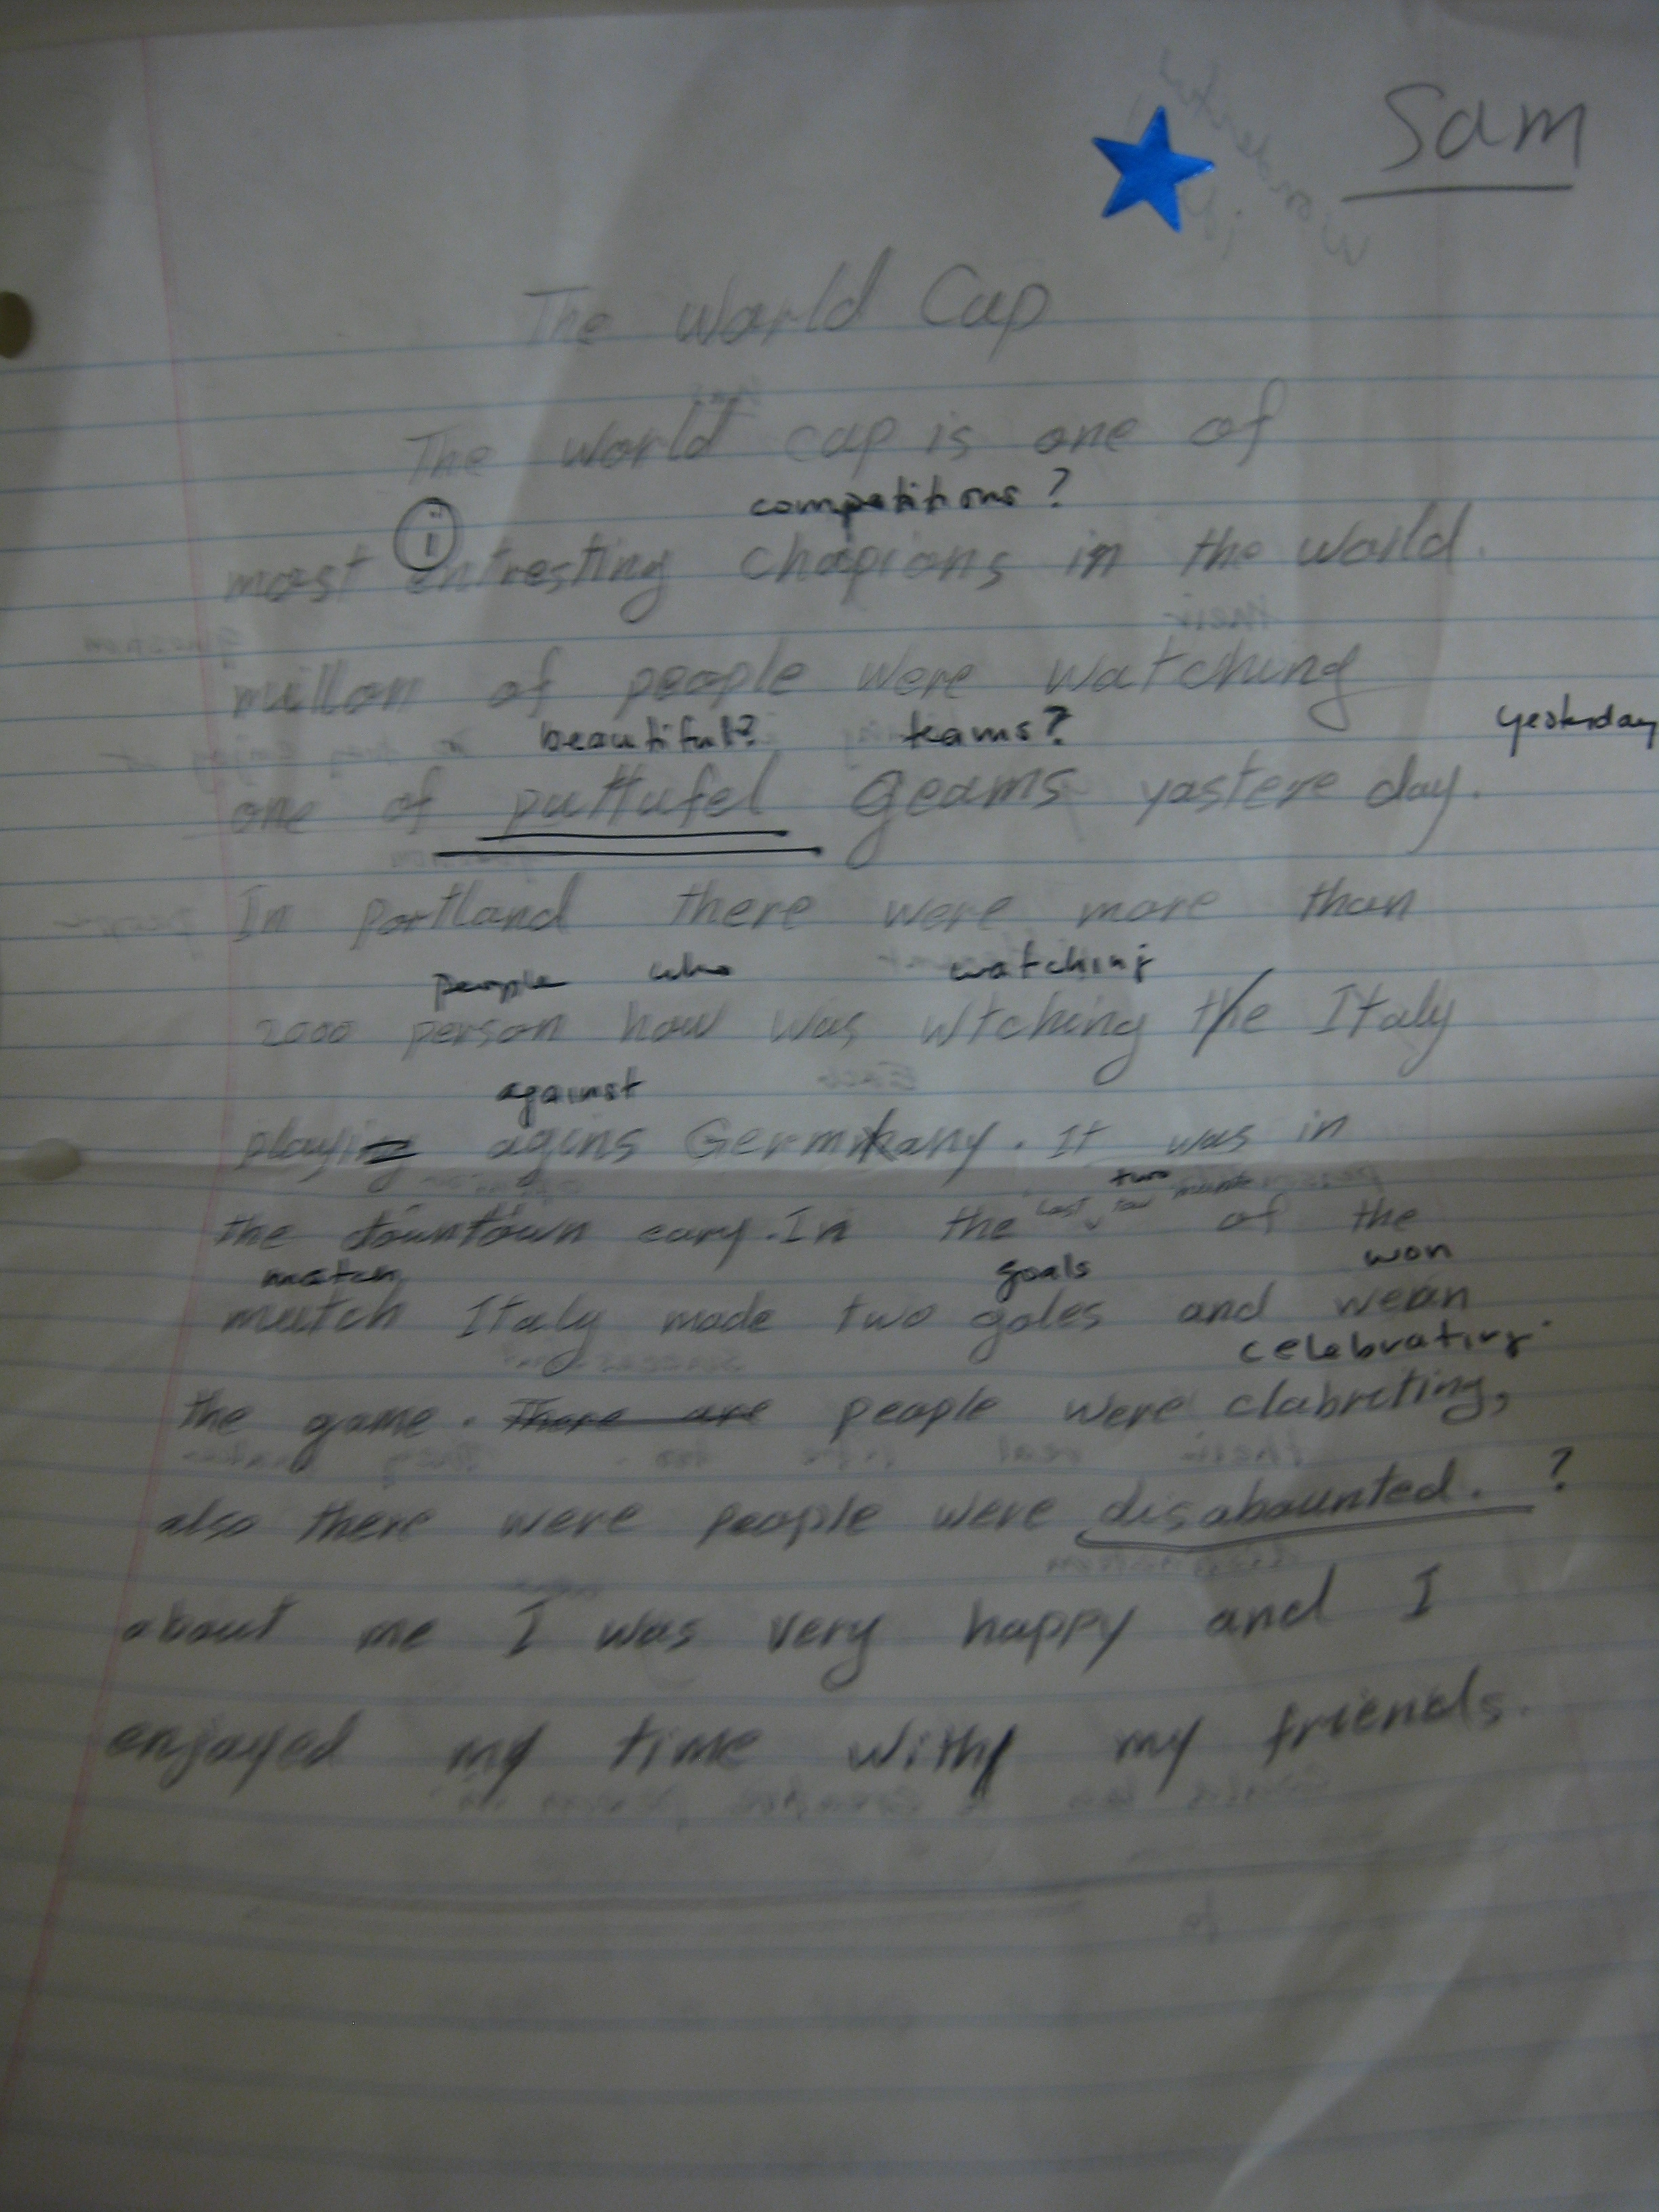 Sam
The World Cup
The world cup is one of
competitions?
i
most entresting chapions in the world.
millon of people were watching
beautiful? teams? yesterday
one of puttufel geams yastere day.
In portland there were more than
people who watching
2000 person how was wtching the Italy
against
playing agins Germany. It was in
two
last tow munite
the downtown eary. In the of the
match goals won
mutch Italy made two goles and wean
celebrating
the game. There are people were clabreting,
also there were people were disabounted. ?
about me I was very happy and I
enjoyed my time with my friends.